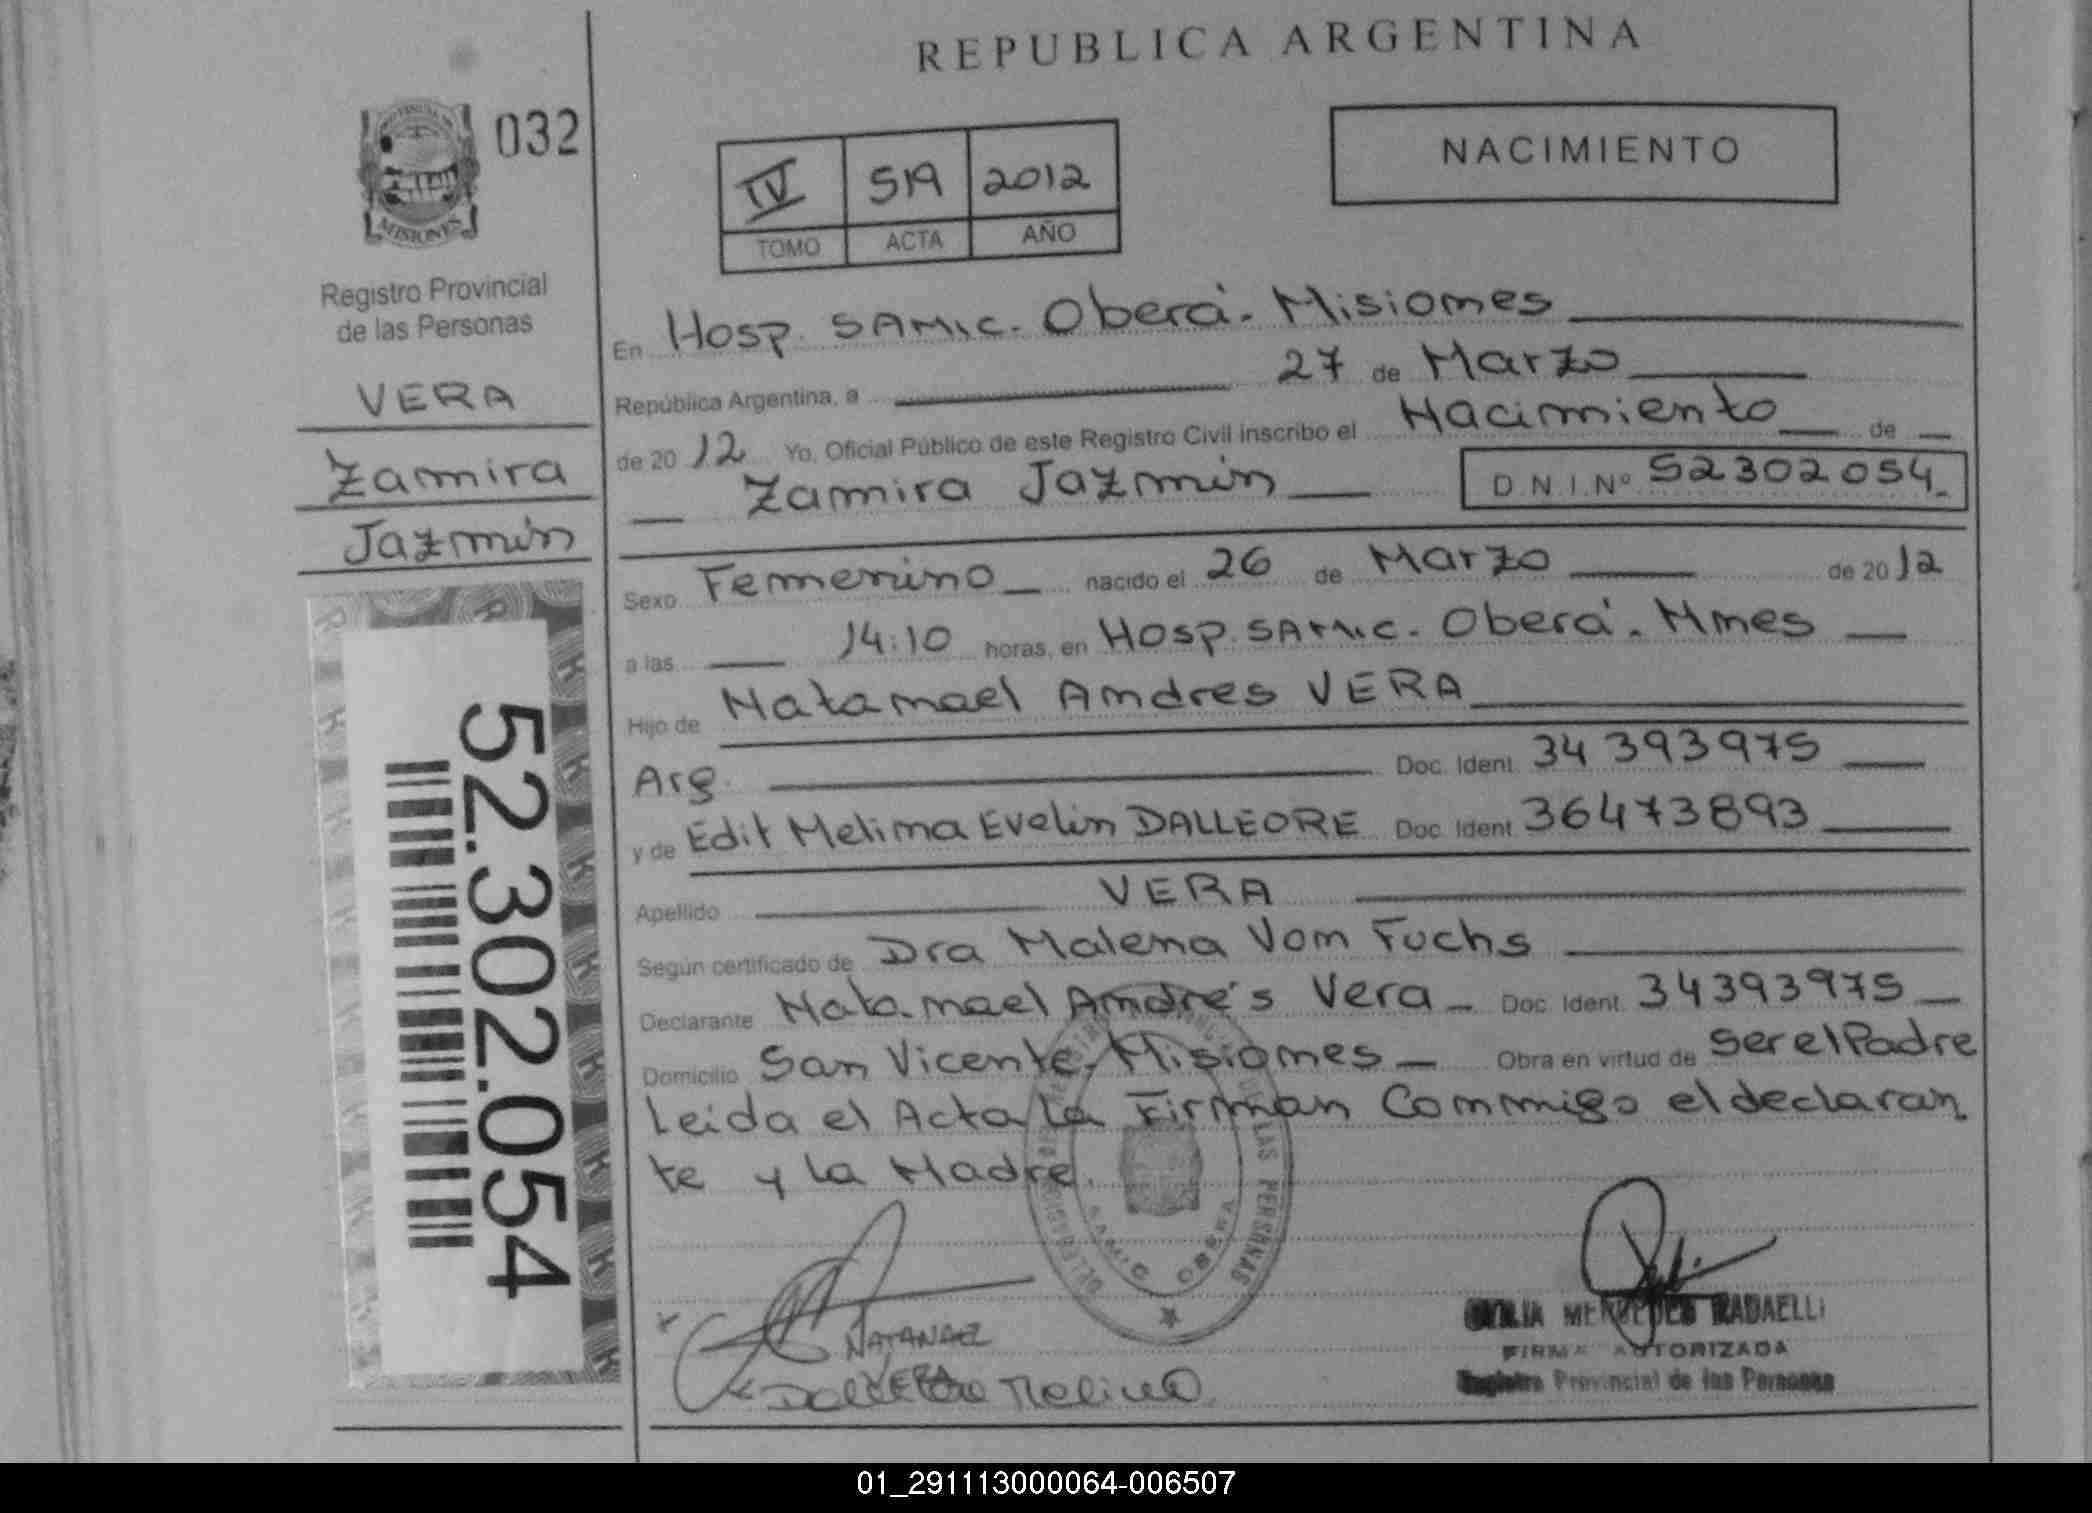 REPUBLICA ARGENTINA
032
MISIONES
Registro Provincial
de las Personas
VERA
Zamira
Jazmín
52.302.054
IV 519 2012
TOMO ACTA AÑO
NACIMIENTO
En Hosp. SAMIC. Oberá. Misiones
República Argentina, a 27 de Marzo
de 2012 Yo, Oficial Público de este Registro Civil inscribo el Nacimiento de
Zamira Jazmín D.N.I.Nº 52302054
Sexo Femenino nacido el 26 de Marzo de 2012
a las 14:10 horas, en Hosp. SAMIC. Oberá. Mnes
Hijo de Natanael Andres VERA
Arg. Doc. Ident. 34 393975
y de Edit Melina Evelin DALLEORE Doc. Ident. 36473893
Apellido VERA
Según certificado de Dra Malena Von Fuchs
Declarante Natanael André's Vera Doc. Ident. 34393975
Domicilio San Vicente, Misiones Obra en virtud de Ser el Padre
Leida el Acta la Firman Conmigo el declaran
te y la Madre.
DE LAS PERSONAS
SAMIC OBERA
NATANAEL
VERA
MERCEDES RADAELLI
FIRMA AUTORIZADA
Registro Provincial de las Personas
01_291113000064-006507